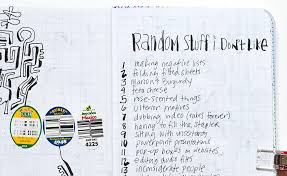 Random Stuff I Don't Like
1 making negative lists
2 folding fitted sheets
3 maroon & burgundy
4 feta cheese
5 rose-scented things
6 litterer profits
7 dubbing video (takes forever)
8 having to fill the stapler
9 sitting with uncertainty
10 powerpoint presentations
pop-up boxes on websites
12 editing audio files
13 inconsiderate people
Mexico
4225